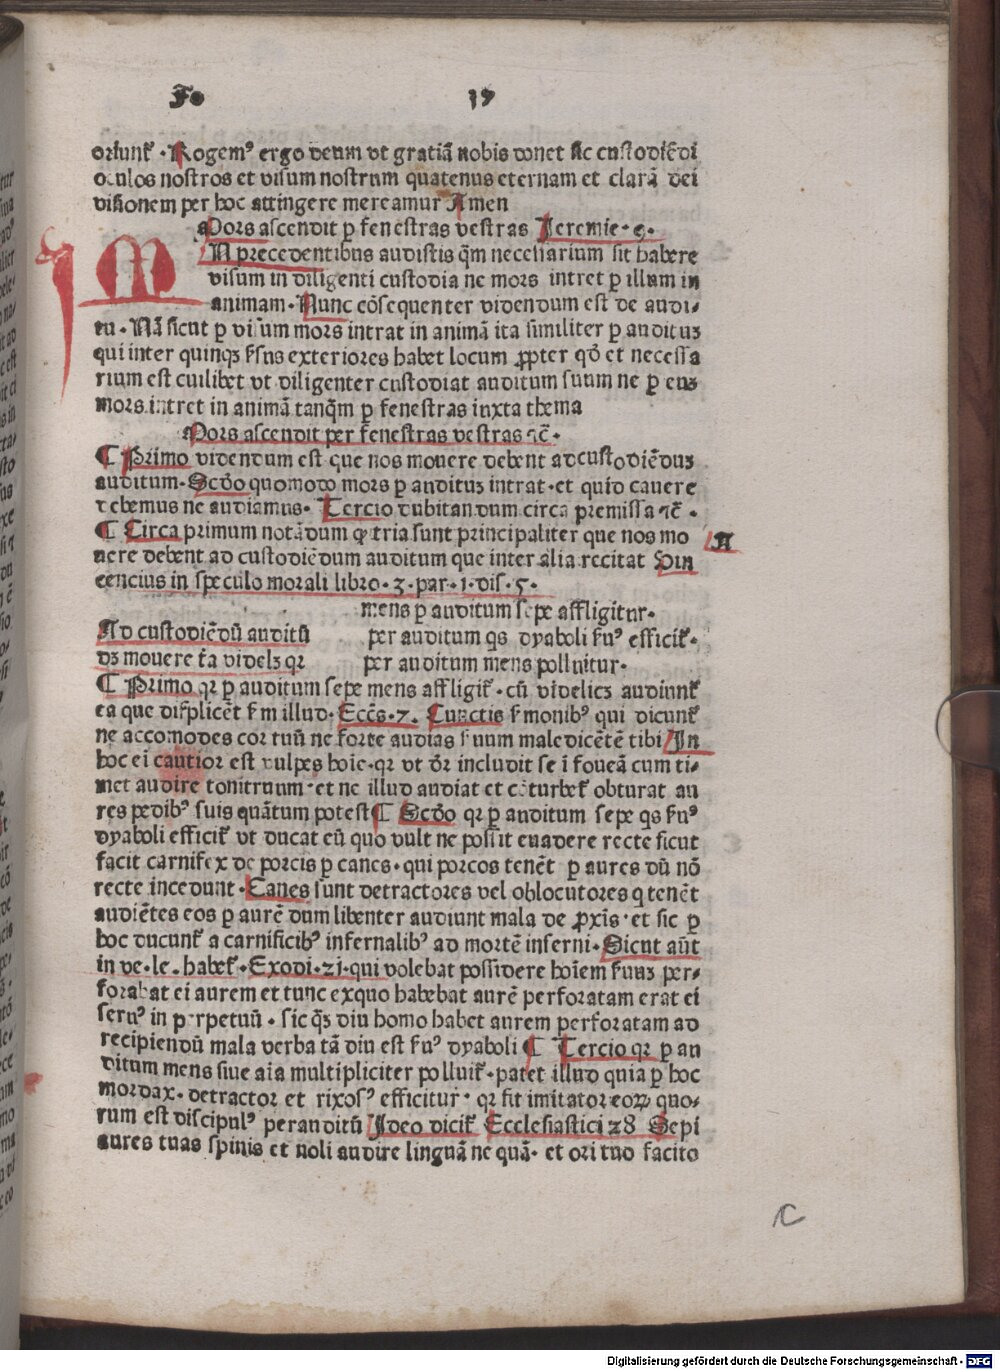 Fo 17
oriunt᷑ · Rogemꝰ ergo deum vt gratiā nobis donet sic custodiēdi
oculos nostros et visum nostrum quatenus eternam et clarā dei
visionem per hoc attingere mereamur Amen
Mors ascendit ꝑ fenestras vestras Jeremie · 9 ·
IN precedentibus audistis qm̄ necessarium sit habere
visum in diligenti custodia ne mors intret ꝑ illum in
animam · Nunc cōsequenter videndum est de audi⸗
tu · Nā sicut ꝑ visum mors intrat in animā ita similiter ꝑ auditus
qui inter quinqꝫ sn̄s exteriores habet locum ꝓpter qđ et necessa
rium est cuilibet vt diligenter custodiat auditum suum ne ꝑ eus
mors intret in animā tanqm̄ ꝑ fenestras iuxta thema
Mors ascendit per fenestras vestras ⁊c̄ ·
¶ Primo videndum est que nos mouere debent ad custodiēdus
auditum · Scđo quomodo mors ꝑ auditus intrat · et quid cauere
debemus ne audiamus · Tercio dubitandum circa premissa ⁊c̄ ·
¶ Circa primum notādum ꝙ tria sunt principaliter que nos mo A
uere debent ad custodiēdum auditum que inter alia recitat Vin
cencius in speculo morali libro · 3 · par · 1 · dis · 5 ·
mens ꝑ auditum sepe affligitur ·
Ad custodiēdū auditū per auditum qs dyaboli ẜuꝰ efficit᷑ ·
dꝫ mouere tr̄a videlꝫ qr per auditum mens polluitur ·
¶ Primo qr ꝑ auditum sepe mens affligit᷑ · cū videlicꝫ audiunt᷑
ea que displicēt ẜm illud · Ecc̄s · 7 · Cunctis ẜmonibꝰ qui dicunt᷑
ne accomodes cor tuū ne forte audias ẜuum maledicētē tibi In
hoc eī cautior est vulpes hoīe · qr vt dr̄ includit se ī foueā cum ti⸗
met audire tonitruum · et ne illud audiat et cōturbet᷑ obturat au
res pedibꝰ suis quātum potest ¶ Scđo qr ꝑ auditum sepe qs ẜuꝰ
dyaboli efficit᷑ vt ducat eū quo vult ne possit euadere recte sicut
facit carnifex de porcis ꝑ canes · qui porcos tenēt ꝑ aures dū nō
recte incedunt · Canes sunt detractores vel oblocutores q tenēt
audiētes eos ꝑ aurē dum libenter audiunt mala de ꝓxīs · et sic ꝑ
hoc ducunt᷑ a carnificibꝰ infernalibꝰ ad mortē inferni · Sicut aūt
in ve · le · habet᷑ · Exodi · 21 · qui volebat possidere hoīem ẜuus per⸗
forabat ei aurem et tunc exquo habebat aurē perforatam erat ei
seruꝰ in perpetuū · sic qꝫ diu homo habet aurem perforatam ad
recipiendū mala verba tā diu est ẜuꝰ dyaboli ¶ Tercio qr ꝑ au
ditum mens siue aīa multipliciter polluit᷑ · patet illud quia ꝑ hoc
mordax · detractor et rixosꝰ efficitur · qr fit imitator eoꝝ quo⸗
rum est discipulꝰ per auditū Ideo dicit᷑ Ecclesiastici 28 Sepi
aures tuas spinis et noli audire linguā ne quā · et ori tuo facito
C
Digitalisierung gefördert durch die Deutsche Forschungsgemeinschaft - DFG